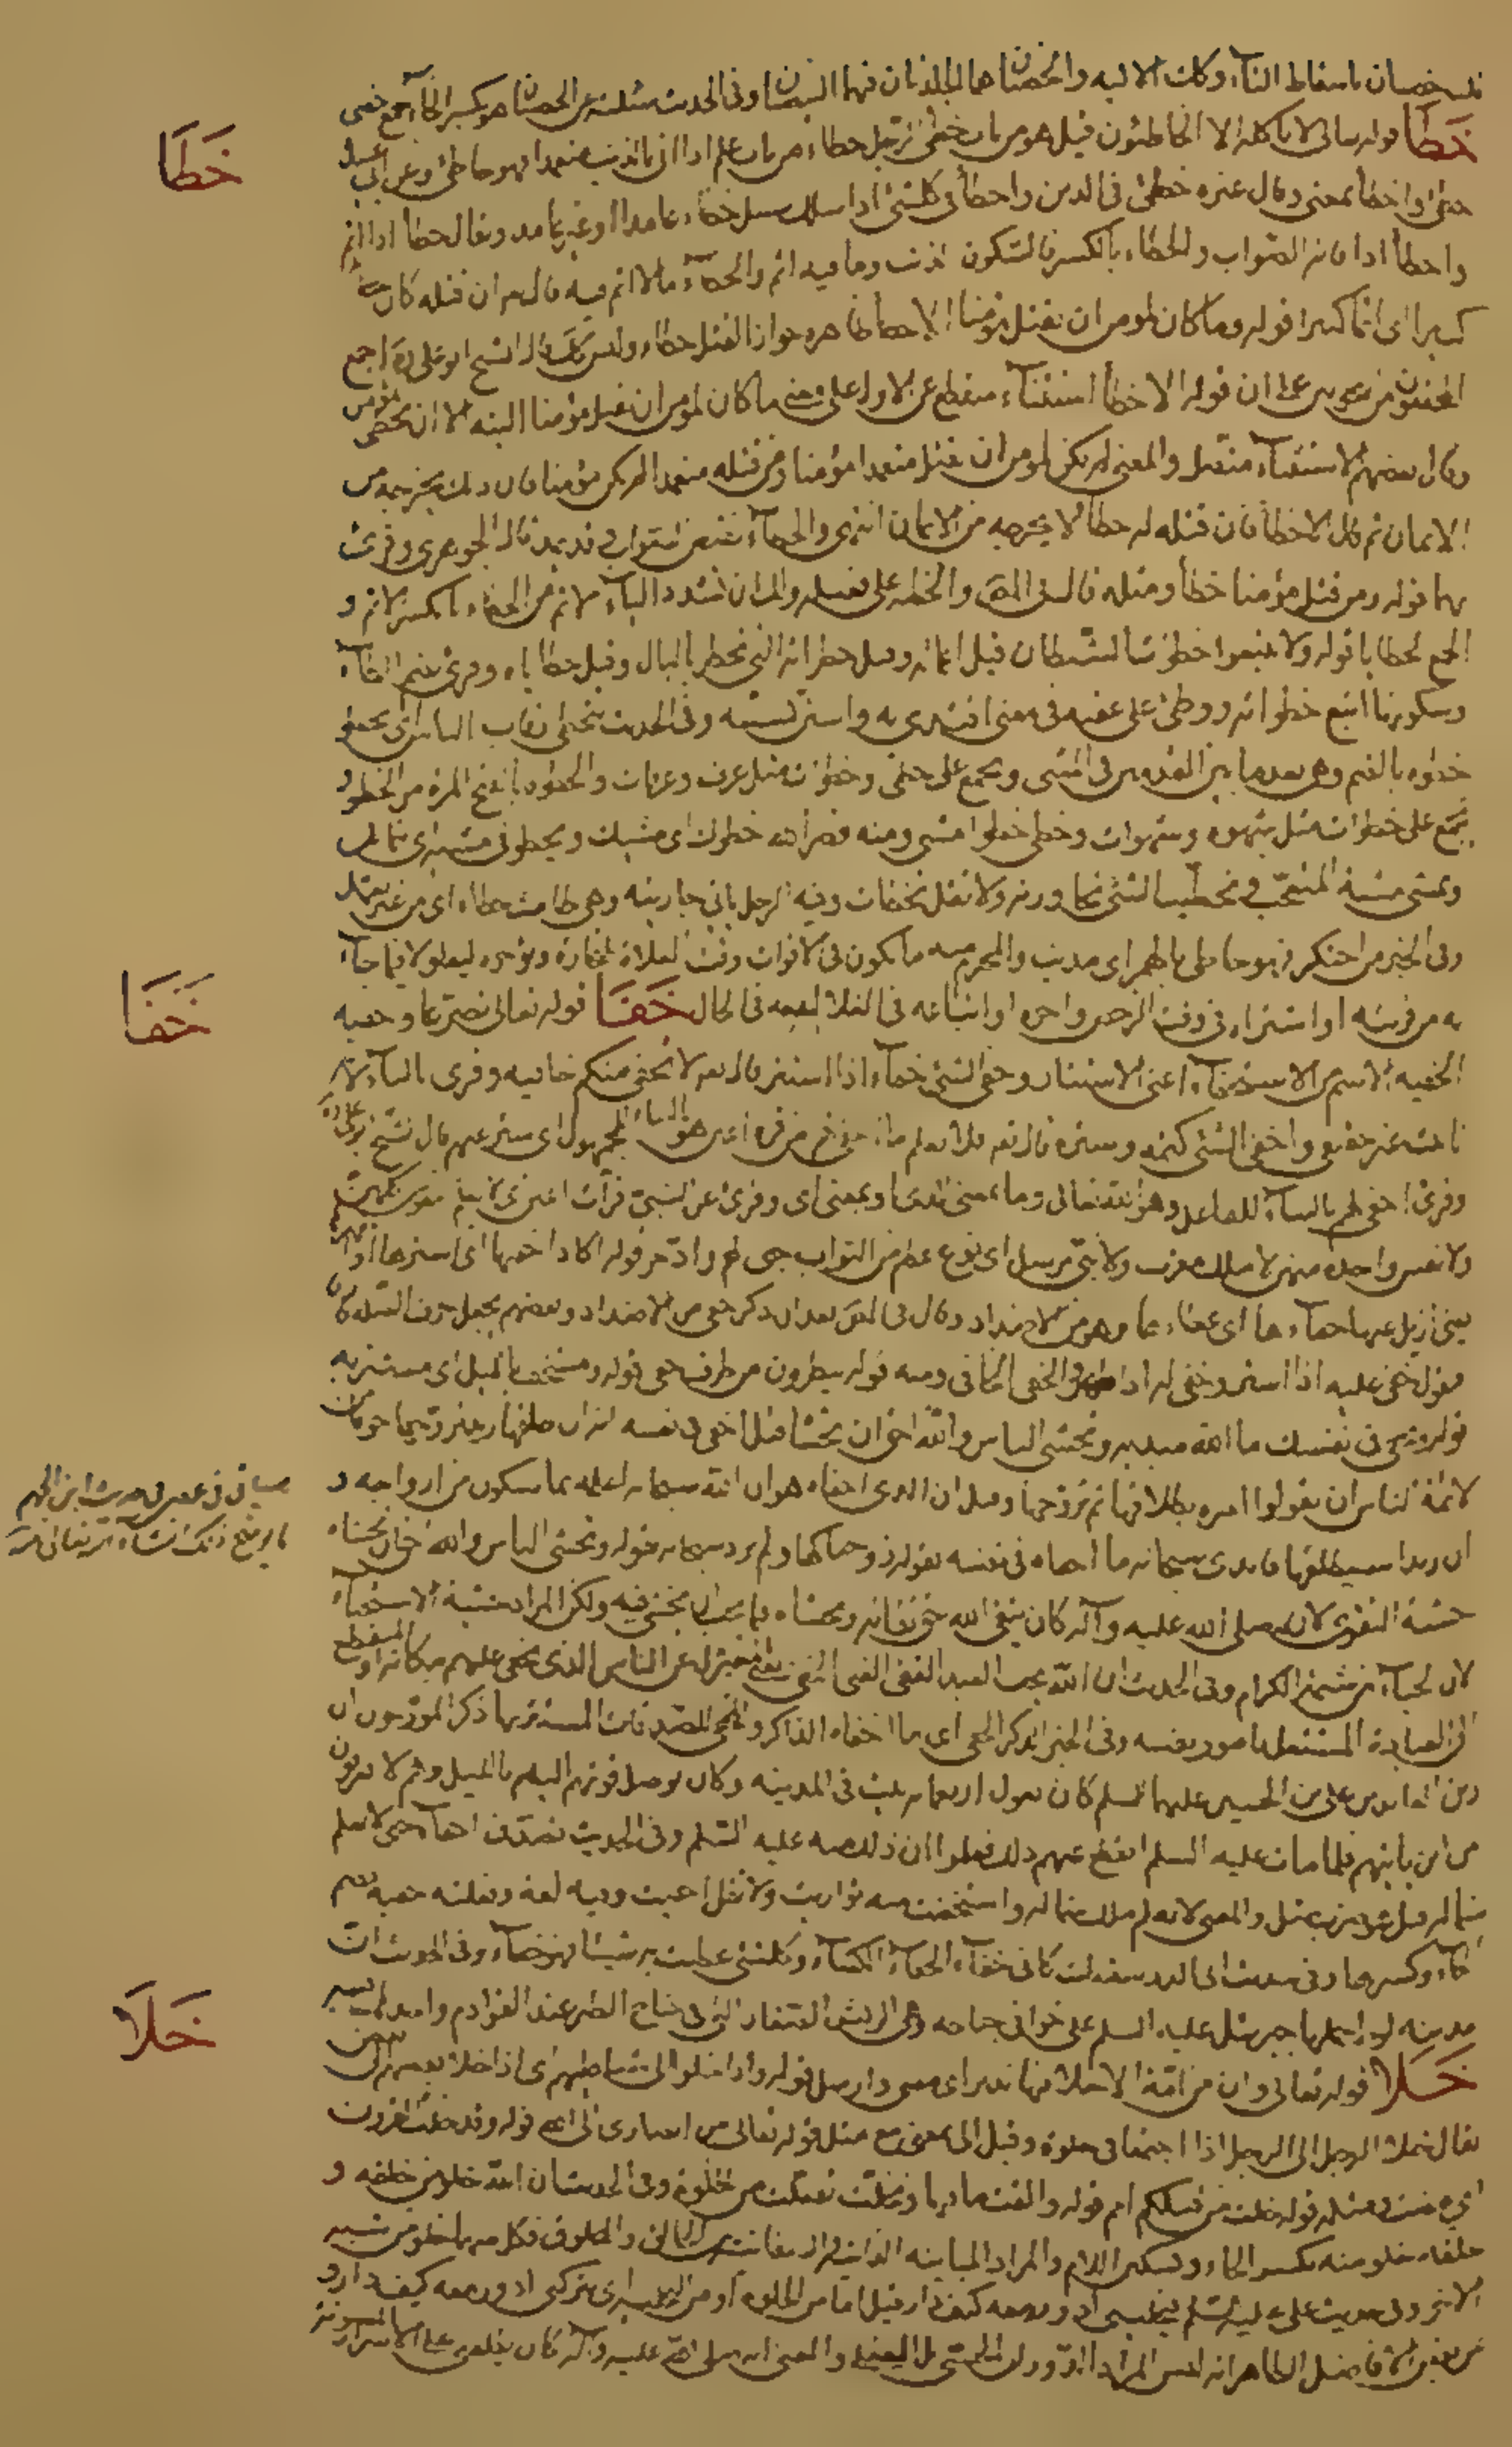 خصيان باسقاط التاء وكذلك الالية والخصيتان هما الجلدتان فيهما البيضتان وفي الحديث عن الخصيتان هو بكسر الخاء جمع خصى
خطا
خطا قوله تعالى لا ياكله الا الخاطئون قيل هو من باب خطئ الرجل خطاء من باب علم اذا اتى بالذنب متعمدا فهو خاطئ وعن ابي عبيد
خطئ واخطأ بمعنى وقال غيره خطئ في الدين واخطأ في كلشئ اذا سلك سبيل خطاء عامدا او غير عامد ويقال خطا اذا اثم
واخطأ اذا فاته الصواب والخطاء بالكسر فالسكون الذنب وما فيه اثم والخطآء ما لا اثم فيه قال تعم ان قتله كان
كبيرا اى اثما كبيرا قوله وما كان لمومن ان يقتل مؤمنا الا خطا ظاهره جواز القتل خطاء وليس كذلك قال الشيخ ابو على ره اجمع
المحققون من النحويين على ان قوله الا خطأ استثناء منقطع عن الاول على معنى ما كان لمومن ان يقتل مؤمنا البتة الا ان يخطئ
وقال بعضهم الاستثناء متصل والمعنى لم يكن لمومن ان يقتل متعمدا مؤمنا ومن قتله متعمدا لم يكن مؤمنا فان ذلك يخرجه من
الايمان ثم قال الا خطأ فان قتله له خطأ لا يخرجه من الايمان انتهى والخطآء نقيض الصواب وقد يمد قاله الجوهرى وقرئ
بهما قوله ومن قتل مؤمنا خطأ ومثله قال في المص والخطيئة على فعيلة ولك ان تشدد الياء الاثم من الخطاء بالكسر الاثم و
الجمع الخطايا قوله ولا تتبعوا خطوات الشيطان قيل اعماله وقيل خطراته التي تخطر بالبال وقيل خطاياه وقرئ بضم الطآء
وسكونها اتبع خطواته ووطئ على عقبه في معنى اقتدى به واستن بسنته وفي الحديث يتخطى رقاب الناس اى يخطو
خطوة بالضم وهي بعد ما بين القدمين في المشى ويجمع على خطى وخطوات مثل غرف وغرفات والخطوة بالفتح المرة من الخطو و
يجمع على خطوات مثل شهوة وشهوات وخطى خطوا مشى ومنه قصر الله خطوك اى مشيك ويخطو في مشيه اى يتمايل
ويمشى مشية المتعجب وتخطيت الشئ تجاوزته ولا تقل تخطات وفيه الرجل ياتي جاريته وهي طامث خطاء اى من غير تعمد
وفي الخبر من احتكر فهو خاطئ بالهمز اى مذنب والمحرم منه ما يكون في الاقوات وقت الغلاء للتجارة ويؤخره ليغلو لا فيما جاء
خفا
به من قريته او اشتراه في وقت الرخص واخره او ابتاعه في الغلاء ليبيعه في الحال خفا قوله تعالى تضرعا وخفية
الخفية الاسم من الاستخفاء اعني الاستتار وخفى الشئ خفاء اذا استتر قال تعم لا تخفى منكم خافية وقرى بالياء لان
تانيثه غير حقيقي واخفى الشئ كتمه وستره قال تعم فلا تعلم ما اخفى لهم من قرة اعين هو بالبناء للمجهول اى ستر عنهم قال الشيخ ابو على ره
وقرئ اخفى لهم بالبناء للفاعل وهو الله تعالى وما بمعنى الذي او بمعنى اى وقرئ عن النبي قرات اعين اى لا تعلم نفوس كلهن
ولا نفس واحدة منهن لا ملك مقرب ولا نبي مرسل اى نوع عظيم من الثواب خبى لهم وادخر قوله اكاد اخفيها اى استرها او اظهرها
يعني ازيل عنها خفاءها اى غطاءها وهو من الاضداد وقال في المص بعد ان ذكر خفى من الاضداد وبعضهم يجعل حرف الصلة فارقا
فيقول خفى عليه اذا استتر وخفى له اذا ظهر والخفى الخافى ومنه قوله ينظرون من طرف خفى قوله ومستخف بالليل اى مستتر به
قوله وتخفى في نفسك ما الله مبديه وتخشى الناس والله احق ان تخشاه قيل اخفى في نفسه انه ان طلقها زيد تزوجها خوفا من
سياتي في حديث ابن الجهم
لائمة الناس ان يقولوا امره بطلاقها ثم تزوجها وقيل ان الذي اخفاه هو ان الله سبحانه اعلمه بما سيكون من ازواجه و
ما يوضح ذلك انشاء الله تعالى
ان زيدا سيطلقها فابدى سبحانه ما اخفاه في نفسه بقوله زوجناكها ولم يرد سبحانه بقوله وتخشى الناس والله احق ان تخشاه
خشية التقوى لانه صلى الله عليه وآله كان يتقى الله حق تقاته ويخشاه فيما يجب ان يخشى فيه ولكن المراد خشية الاستحياء
لان الحياء من شيمة الكرام وفي الحديث ان الله يحب العبد التقى الغنى الخفى يعنى المعتزل عن الناس الذي يخفى عليهم مكانه او المنقطع
الى العبادة المشتغل بامور نفسه وفي الخبر خير الذكر الخفى اى ما اخفاه الذاكر والخفى للصدقات المستتر بها ذكر المورخون ان
زين العابدين على بن الحسين عليهما السلم كان يعول اربعمائة بيت في المدينة وكان يوصل قوتهم اليهم بالليل وهم لا يعرفون
من اين ياتيهم فلما مات عليه السلم انقطع عنهم ذلك فعلموا ان ذلك منه عليه السلم وفي الحديث تصدق اخفاء حتى لا تعلم
شماله قيل هو ضرب مثل والمعنى لا يعلم ملك شماله واستخفيت منه تواريت ولا تقل اختفيت وفيه لغة وفعلته خفية بضم
خاء وكسرها والخفاء الكساء وكلشئ غطيت به شيئا فهو خفاء وفي الحديث ان
مدينة لوط حملها جبرئيل عليه السلم على خوافى جناحه وهي الريش الصغار التي في جناح الطير عند القوادم
خلا
خلا قوله تعالى وان من امة الا خلا فيها نذير اى مضى وارسل قوله واذا خلوا الى شياطينهم اى اذا خلا بعضهم الى
يقال خلا الرجل الى الرجل اذا اجتمعا في خلوة وقيل الى بمعنى مع مثل قوله تعالى من انصارى الى الله قوله وقد خلت القرون
اى مضت ومثله قوله خلت من قبلكم امم قوله والقت ما فيها وتخلت تفعلت من الخلوة وفي الحديث ان الله خلو من خلقه و
خلقه خلو منه بكسر الخاء وتسكين اللام والمراد المباينة الذاتية بين الخالق والمخلوق فكل منهما خلو من شبه
الاخر وفي حديث على عليه السلم فيخليني ادور معه كيف دار قيل اما من الخلوة او من التخلية اى يتركني ادور معه كيف دار و
عن بعض الافاضل الظاهر انه ليس المراد الدوران الجسمى بل العقلى والمعنى انه صلى الله عليه وآله كان يطلعني على الاسرار المصونة